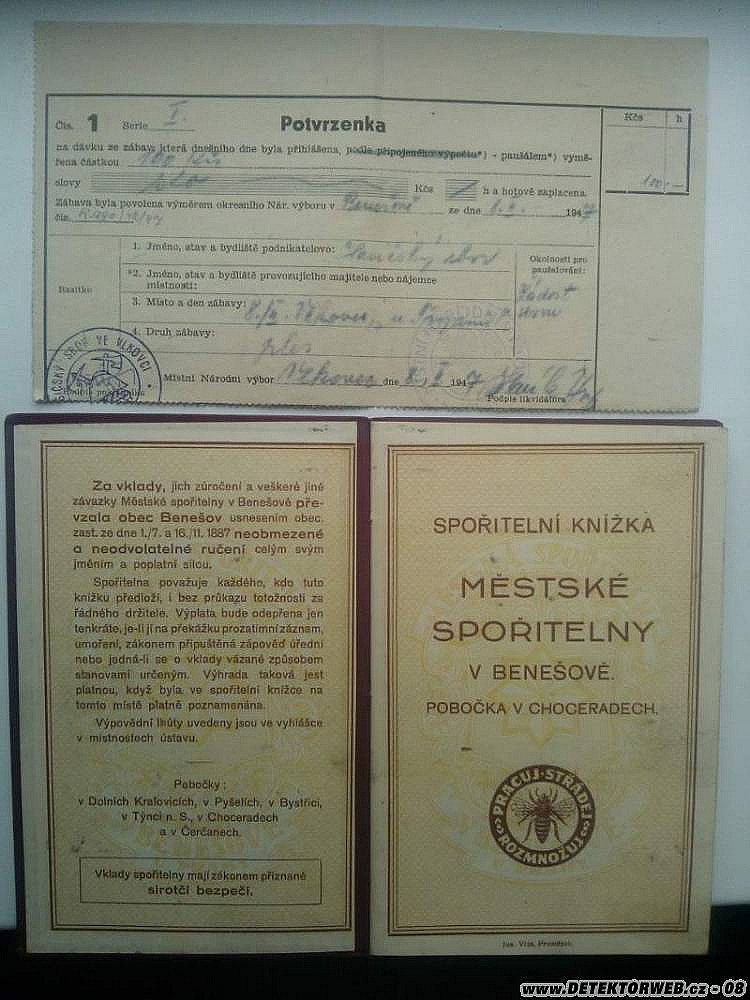 Kčs h
Čís. 1 Serie I. Potvrzenka
na dávku ze zábav, která dnešního dne byla přihlášena, podle připojeného výpočtu*) - paušálem*) vymě-
řena částkou 100 Kčs 100.—
slovy sto Kčs h a hotově zaplacena.
Zábava byla povolena výměrem okresního Nár. výboru v Benešově ze dne 1947
čís.
1. Jméno, stav a bydliště podnikatelovo: Hasičský sbor
Okolnosti pro
paušalování:
*2. Jméno, stav a bydliště provozujícího majitele nebo nájemce
místnosti:
Razítko
3. Místo a den zábavy:
4. Druh zábavy:
ples
SBOR VE VLKOVCI
Místní Národní výbor Vlkovec dne 1947
Podpis likvidátora
Za vklady, jich zúročení a veškeré jiné
závazky Městské spořitelny v Benešově pře-
vzala obec Benešov usnesením obec.
zast. ze dne 1./7. a 16./11. 1887 neobmezené
a neodvolatelné ručení celým svým
jměním a poplatní silou.
Spořitelna považuje každého, kdo tuto
knížku předloží, i bez průkazu totožnosti za
řádného držitele. Výplata bude odepřena jen
tenkráte, je-li jí na překážku prozatímní záznam,
umoření, zákonem připuštěná zápověď úřední
nebo jedná-li se o vklady vázané způsobem
stanovami určeným. Výhrada taková jest
platnou, když byla ve spořitelní knížce na
tomto místě platně poznamenána.
Výpovědní lhůty uvedeny jsou ve vyhlášce
v místnostech ústavu.
Pobočky:
v Dolních Kralovicích, v Pyšelích, v Bystřici,
v Týnci n. S., v Choceradech
a v Čerčanech.
Vklady spořitelny mají zákonem přiznané
sirotčí bezpečí.
SPOŘITELNÍ KNÍŽKA
MĚSTSKÉ
SPOŘITELNY
V BENEŠOVĚ.
POBOČKA V CHOCERADECH.
PRACUJ·STŘÁDEJ
ROZMNOŽUJ
www.DETEKTORWEB.cz - 08